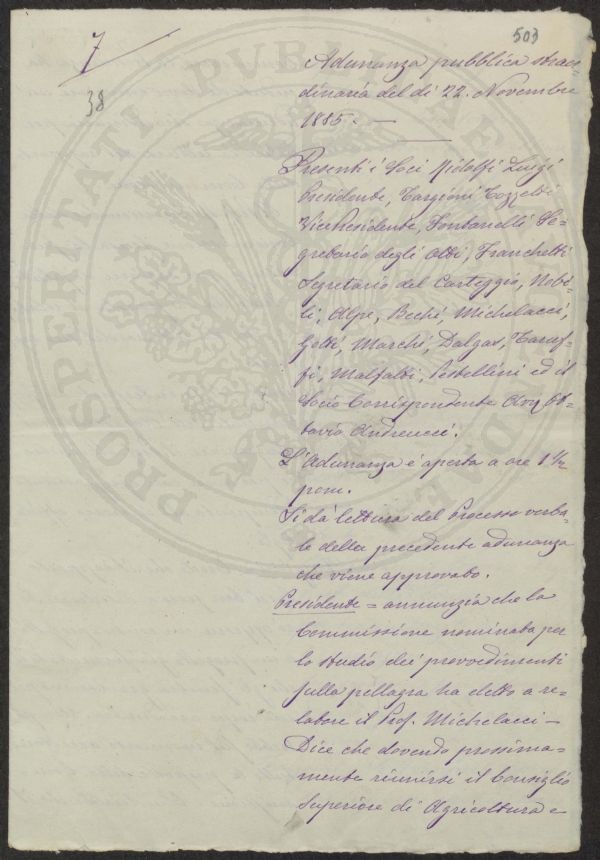 7
503
38
Adunanza pubblica straor
dinaria del dì 22. Novembre
1885. —
Presenti i Soci Ridolfi Luigi
Presidente, Targioni Tozzetti
VicePresidente, Fontanelli Se=
gretario degli Atti, Franchetti
Segretario del Carteggio, Nobi=
li, Alpe, Bechi, Michelacci,
Gotti, Marchi, Dalgas, Taruf=
fi, Malfatti, Pestellini ed il
Socio Corrispondente Avv. Ot=
tavio Andreucci.
L'Adunanza è aperta a ore 1 ½
pom.
Si dà lettura del Processo verba=
le della precedente adunanza
che viene approvato.
Presidente = annunzia che la
Commissione nominata per
lo studio dei provvedimenti
sulla pellagra ha eletto a re=
latore il Prof. Michelacci —
Dice che dovendo prossima=
mente riunirsi il Consiglio
Superiore di Agricoltura e
PROSPERITATI PUBLICAE